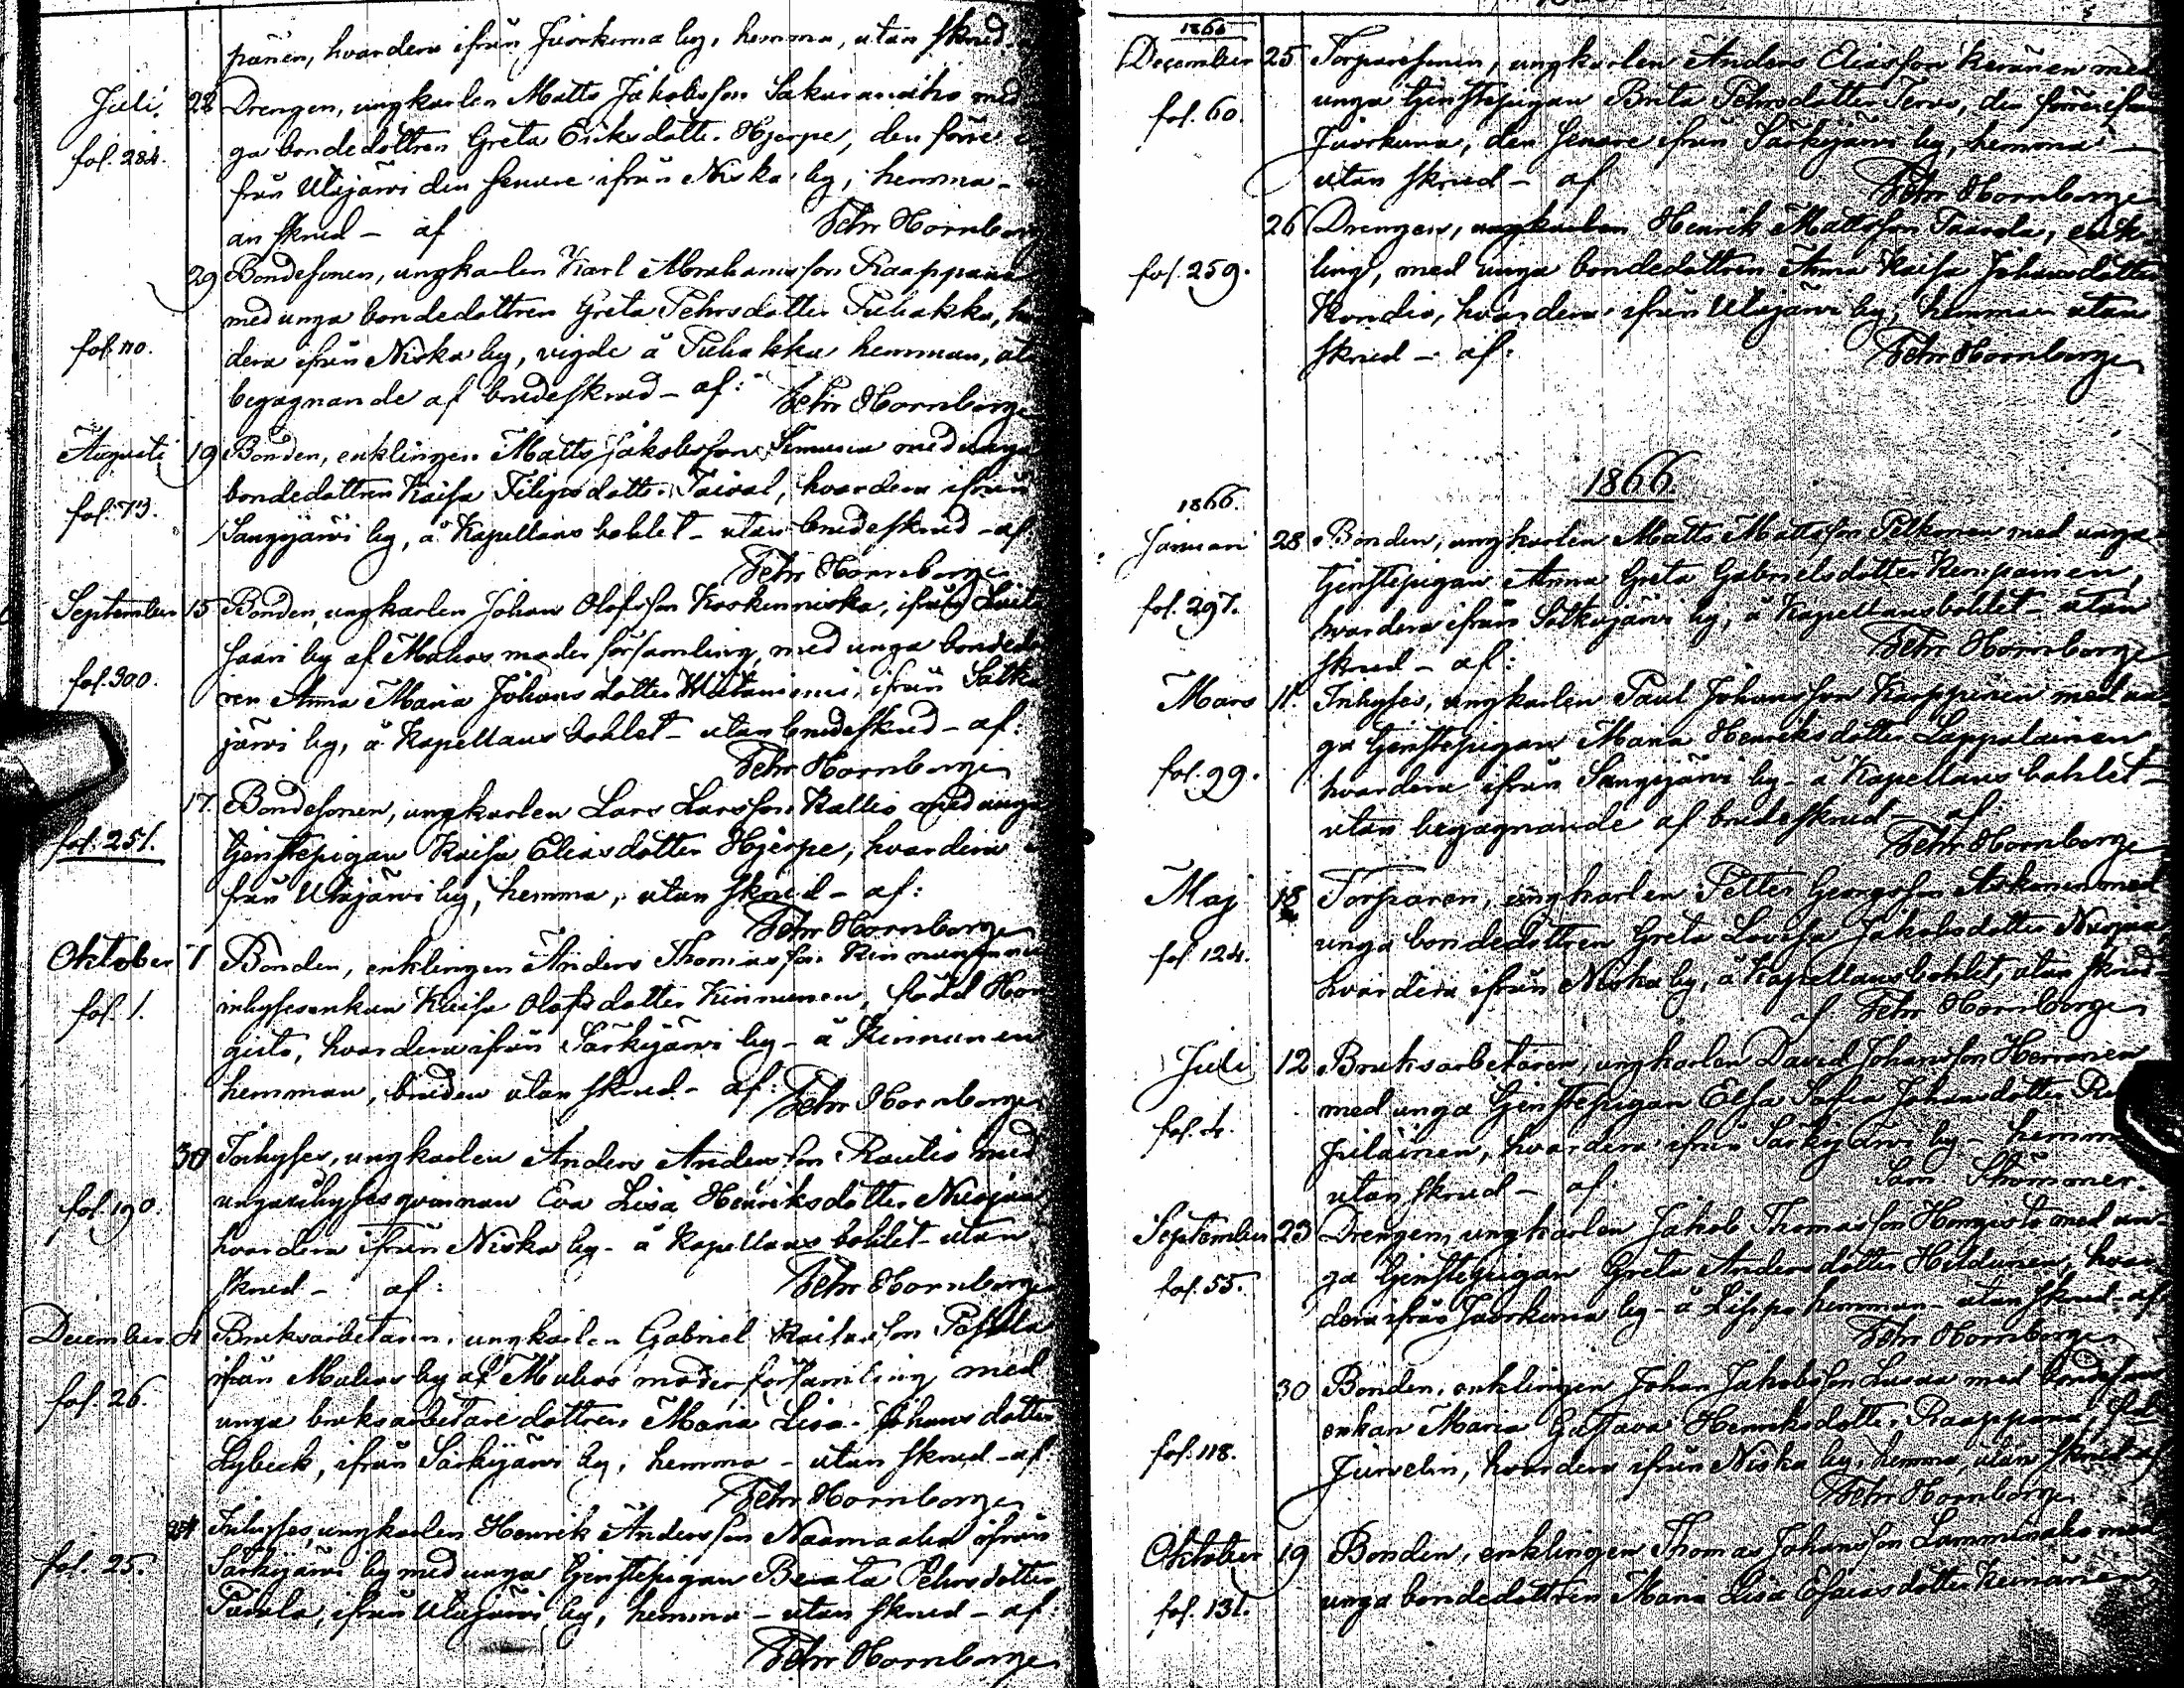 panen, hvardera ifrån Juorkuna by, hemma, utan skrud
Juli. 22 Drengen, ungkarlen Matts Jakobsson Sakaranaho med
fol. 284. ga bondedottren Greta Eriksdotter Hjerpe, den förre
från Utajärvi den senare ifrån Niska by, hemma -
an skrud - af Pehr Hornborg
29 Bondesonen, ungkarlen Karl Abrahamsson Raappana
med unga bondedottren Greta Pehrsdotter Puhakka, hv
fol. 110. dera ifrån Niska by, vigde å Puhakka hemman, ut
begagnande af brudeskrud - af: Pehr Hornborg
Augusti 19 Bonden, enklingen Matts Jakobsson med unga
fol. 73. bondedottren Kaisa Filipsdotter Toivol, hvardera ifrån
Sangijärvi by, å Kapellans bohlet - utan brudeskrud - af
Pehr Hornborg
September 15 Bonden, ungkarlen Johan Olofsson Koskenniska, ifrån
saari by af Muhos moder församling, med unga bondedot
fol. 300. ren Anna Maria Johansdotter ifrån Sotka
järvi by, å Kapellans bohlet - utan brudeskrud - af:
Pehr Hornborg
17. Bondesonen, ungkarlen Lars Larsson Kallio med unga
fol. 251. tjenstepigan Kaisa Eliasdotter Hjerpe, hvardera i
från Utajärvi by, hemma, utan skrud - af:
Pehr Hornborg
Oktober 7 Bonden, enklingen Anders Thomasson Kinnunen med
fol. 1. inhysesenkan Kaisa Olofsdotter Kinnunen, född Hon
gisto, hvardera ifrån Särkijärvi by - å Kinnunen
hemman, bruden utan skrud - af: Pehr Hornborg
30 Inhyses, ungkarlen Anders Andersson Rautio med
fol. 190. unga inhyses qvinnan Eva Lisa Henriksdotter Nuojua
hvardera ifrån Niska by - å Kapellans bohlet - utan
skrud - af: Pehr Hornborg
December 4 Bruksarbetaren, ungkarlen Gabriel Kaisasson
ifrån Muhos by af Muhos moder församling med
fol. 26. unga bruksarbetare dottren Maria Lisa Johansdotter
Lybeck, ifrån Särkijärvi by, hemma - utan skrud - af
Pehr Hornborg
24 Inhyses, ungkarlen Henrik Andersson Naamaaho ifrån
fol. 25. Särkijärvi by med unga tjenstepigan Beata Pehrsdotter
Paula, ifrån Utajärvi by, hemma - utan skrud - af:
Pehr Hornborg
1865
December 25 Torparesonen, ungkarlen Anders Eliasson Keränen med
fol. 60. unga tjenstepigan Brita Pehrsdotter Tervo, den förre ifrån
Juorkuna, den senare ifrån Särkijärvi by, hemma -
utan skrud - af Pehr Hornborg
26 Drengen, ungkarlen Henrik Mattsson Taavola, enk-
fol. 259. ling, med unga bondedottren Anna Kaisa Johansdotter
Kondio, hvardera ifrån Utajärvi by, hemma utan
skrud - af: Pehr Hornborg
1866.
1866.
Januari 28 Bonden, ungkarlen Matts Mattsson Pelkonen med unga
tjenstepigan Anna Greta Gabrielsdotter Kemppainen,
fol. 297. hvardera ifrån Sotkajärvi by, å Kapellansbohlet - utan
skrud - af: Pehr Hornborg
Mars 11. Inhyses, ungkarlen Paul Johansson Karppinen med un
ga tjenstepigan Maria Henriksdotter Lappalainen
fol. 99. hvardera ifrån Sangijärvi by - å Kapellans bohlet -
utan begagnande af brudeskrud - af
Pehr Hornborg
Maj 18 Torparen, ungkarlen Petter Georgsson med
fol. 124. unga bondedottren Greta Lovisa Jakobsdotter Nuojua
hvardera ifrån Niska by, å Kapellansbohlet, utan skrud -
af Pehr Hornborg
Juli 12 Bruksarbetaren, ungkarlen David Johansson Heronen
fol. 4. med unga tjenstepigan Elsa Sofia Johansdotter
hvardera ifrån Särkijärvi by - hemma
utan skrud - af: Sam Strömmer.
September 23 Drengen, ungkarlen Jakob Thomasson Hongisto med un
fol. 55. ga tjenstepigan Greta Andersdotter Hildunen, hvar
dera ifrån Juorkuna by - å Lippo hemman - utan skrud - af
Pehr Hornborg
30 Bonden, enklingen Johan Jakobsson Lusua med bondesons
fol. 118. enkan Maria Gustava Henriksdotter Raappana, född
Jurvelin, hvardera ifrån Niska by, hemma, utan skrud af
Pehr Hornborg
Oktober 19 Bonden, enklingen Thomas Johansson Lamminaho med
fol. 131. unga bondedottren Maria Lisa Esaiasdotter